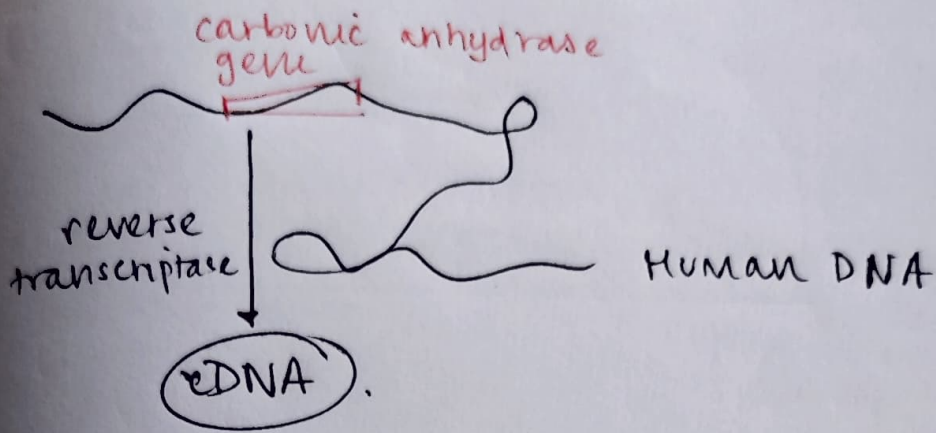 carbonic anhydrase
gene
reverse
transcriptase
Human DNA
cDNA.